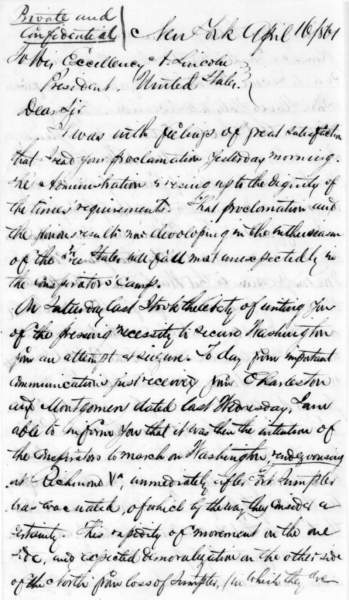 Private and
Confidential
New York April 16/861
To His Excellency A Lincoln
President United States.
Dear Sir
It was with feelings of great satisfaction
that I read your proclamation yesterday morning.
The Administration is rising up to the dignity of
the times requirements. That proclamation and
the results now developing in the enthusiasm
of the Free States will fall most unexpectedly in
the conspirators Camp.
On Saturday last I took the liberty of writing you
of the pressing necessity to secure Washington
from an attempt at seizure. To day from important
communications just received from Charleston
and Montgomery dated last Wednesday, I am
able to inform you that it was then the intention of
the Conspirators to march on Washington, rendezvousing
at Richmond Va, immediately after Fort Sumpter
was evacuated, of which by the way they consider a
certainty. This rapidity of movement on the one
side, and expected demoralization on the other side
of the North from loss of Sumpter, (in which they are